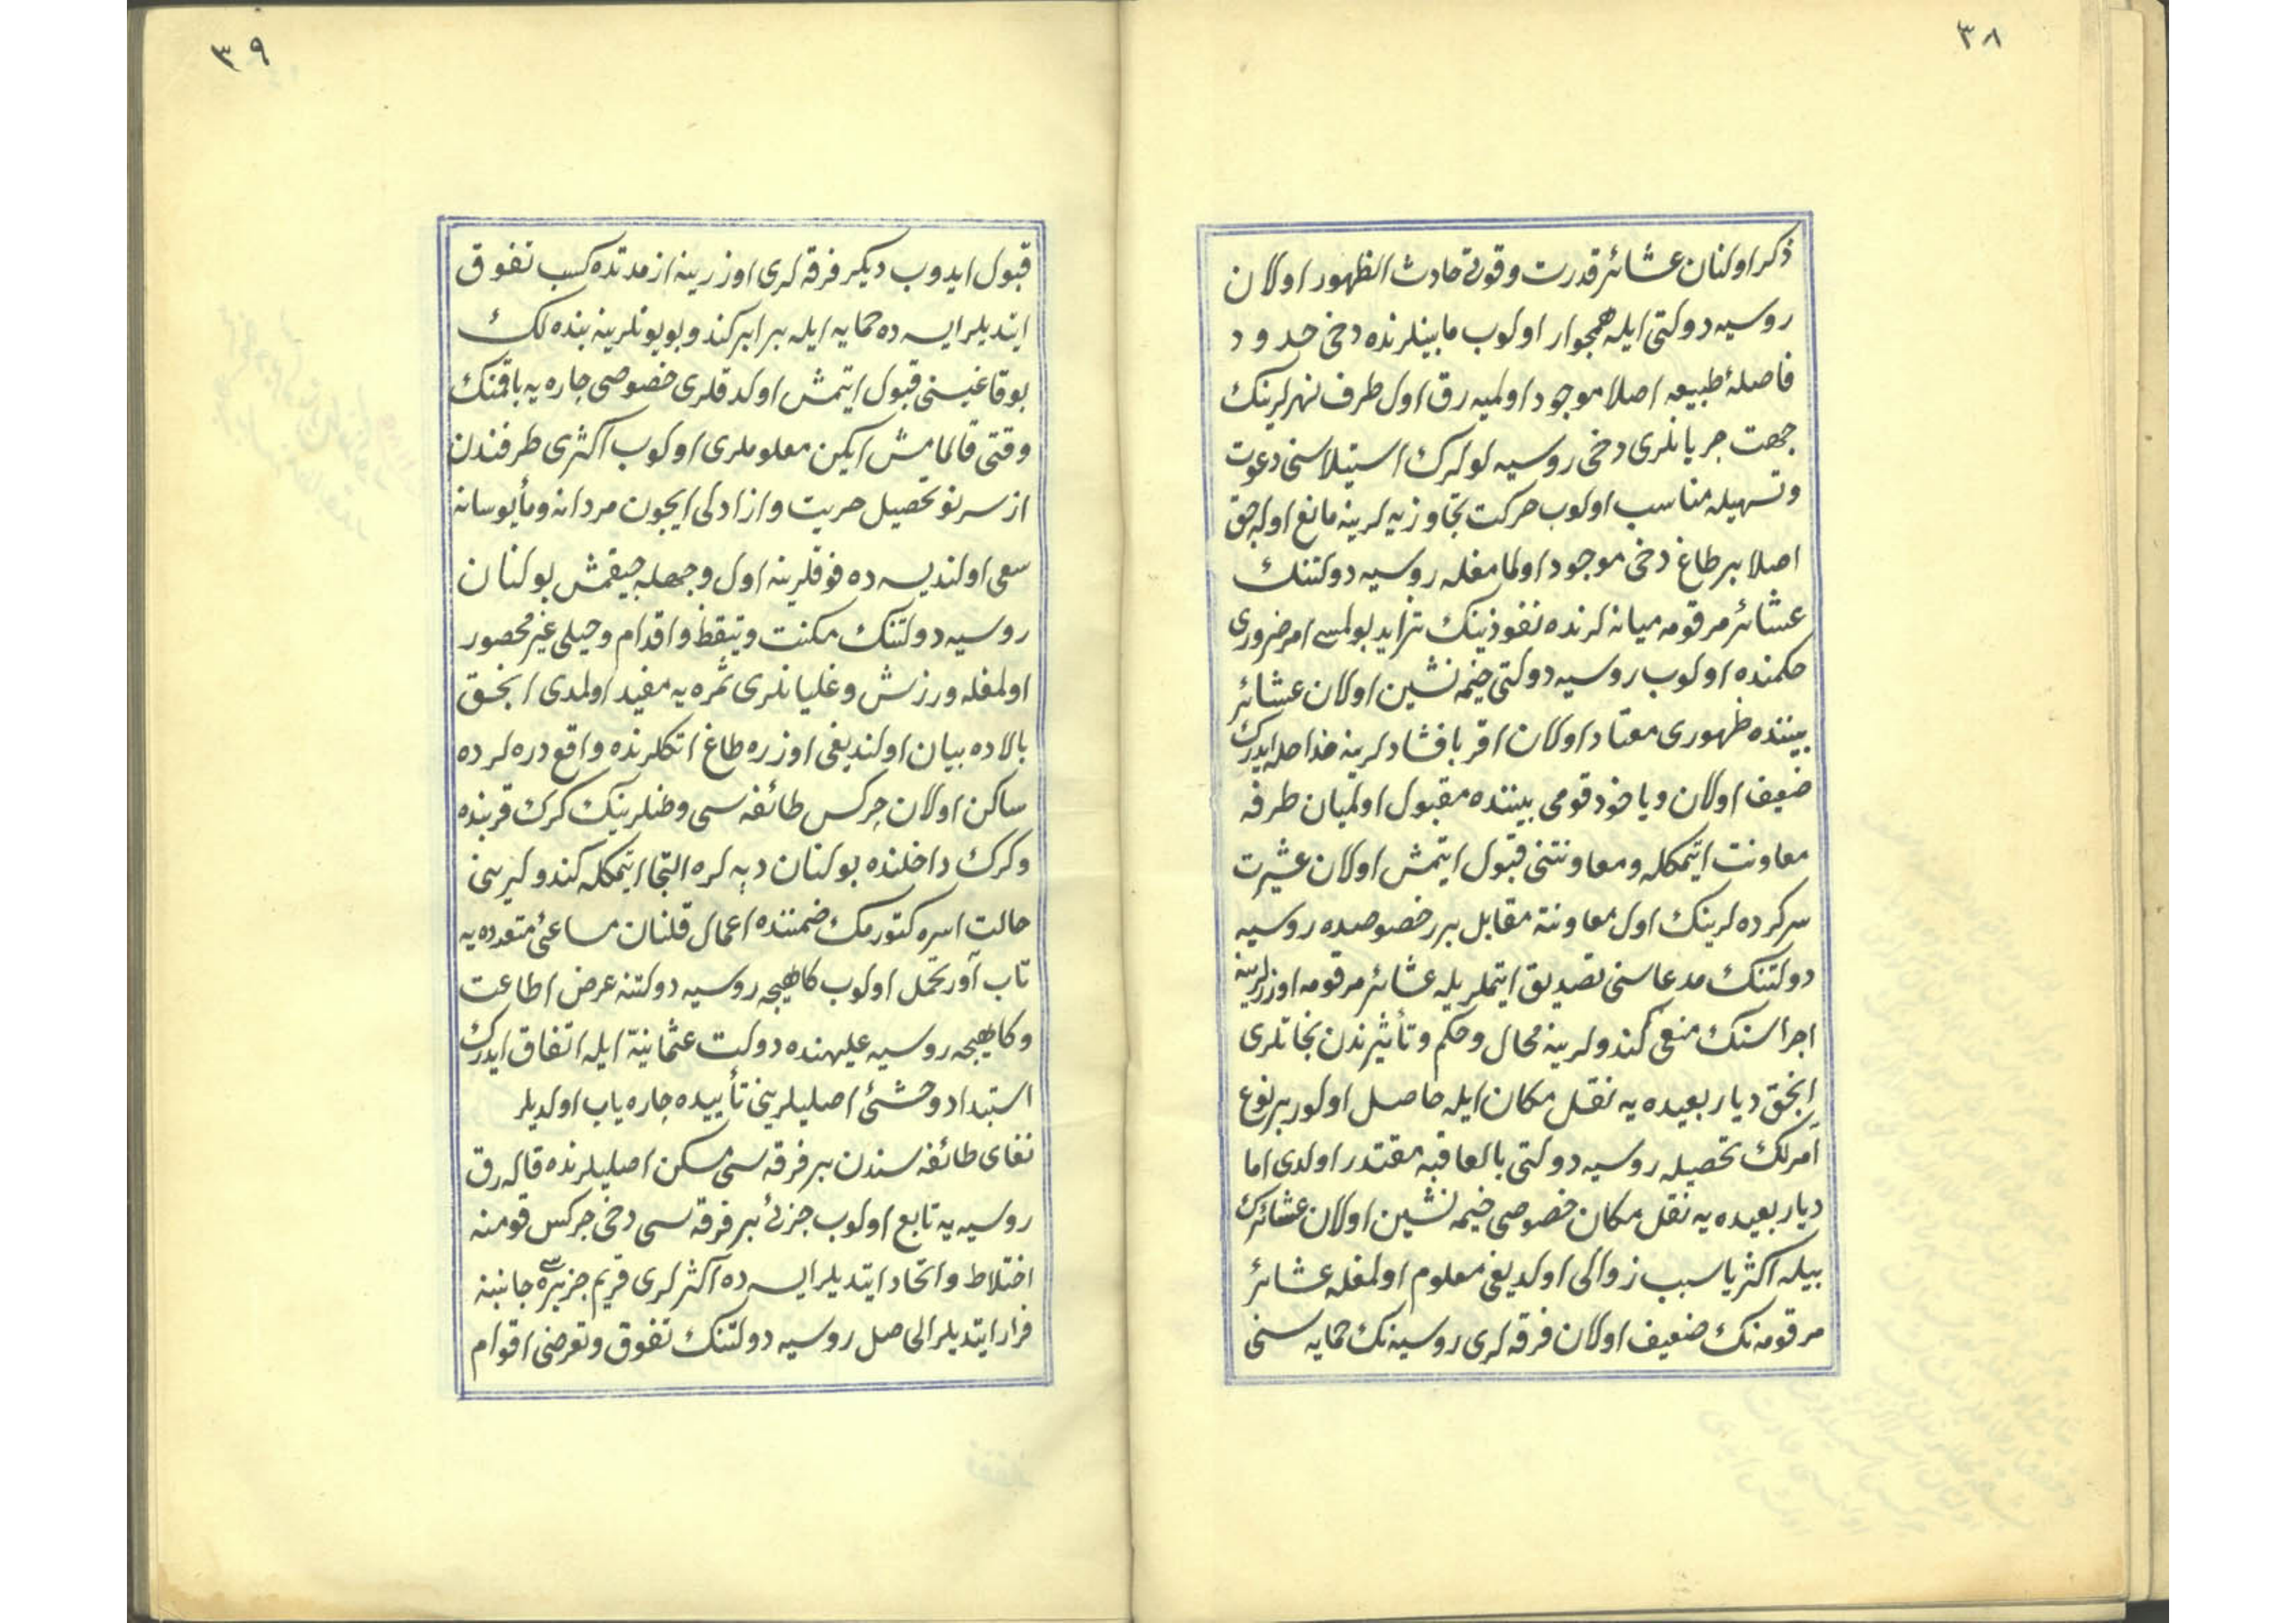 ٣٨
ذكر اولنان عشائر قدرت وقوتى حادث الظهور اولان
روسيه دولتى ايله همجوار اولوب مابينلرنده دخى حدود
فاصلهٔ طبيعه اصلا موجود اولميه رق اول طرف نهرلرينك
جهت جريانلرى دخى روسيه لولرك استيلاسنى دعوت
وتسهيله مناسب اولوب حركت تجاوزيه لرينه مانع اوله جق
اصلا بر طاغ دخى موجود اولمامغله روسيه دولتنك
عشائر مرقومه ميانه لرنده نفوذينك تزايد بولمسى امر ضرورى
حكمنده اولوب روسيه دولتى خيمه نشين اولان عشائر
بيننده ظهورى معتاد اولان اقربا فشادلرينه مداخله ايدرك
ضعيف اولان ويا خود قومى بيننده مقبول اولميان طرفه
معاونت ايتمكله ومعاونتنى قبول ايتمش اولان عشيرت
سركرده لرينك اول معاونته مقابل بر خصوصده روسيه
دولتنك مدعاسنى تصديق ايتملريله عشائر مرقومه اوزرلرينه
اجراسنك منعى كندولرينه محال وحكم وتأثيرندن نجاتلرى
انجق ديار بعيده يه نقل مكان ايله حاصل اولور بر نوع
آمرلك تحصيله روسيه دولتى بالعاقبه مقتدر اولدى اما
ديار بعيده يه نقل مكان خصوصى خيمه نشين اولان عشائرك
بيله اكثريا سبب زوالى اولديغى معلوم اولمغله عشائر
مرقومه نك ضعيف اولان فرقه لرى روسيه نك حمايه سنى
٣٩
قبول ايدوب ديكر فرقه لرى اوزرينه از مدتده كسب تفوق
ايتديلر ايسه ده حمايه ايله برابر كندو بويونلرينه بنده لك
بوقاغيسنى قبول ايتمش اولدقلرى خصوصى چاره يه باقمنك
وقتى قالمامش ايكن معلوملرى اولوب اكثرى طرفندن
از سر نو تحصيل حريت وازادلى ايچون مردانه ومأيوسانه
سعى اولنديسه ده فوقلرينه اول وجهله چيقمش بولنان
روسيه دولتنك مكنت وتيقظ واقدام وحيلى غير محصور
اولمغله ورزش وغليانلرى ثمره يه مفيد اولمدى انجق
بالاده بيان اولنديغى اوزره طاغ اتكلرنده واقع دره لرده
ساكن اولان چركس طائفه سى وطنلرينك كرك قربنده
وكرك داخلنده بولنان دپه لره التجا ايتمكله كندولرينى
حالت اسره كتورمك ضمننده اعمال قلنان مساعئ متعدده يه
تاب آور تحمل اولوب كاهيجه روسيه دولتنه عرض اطاعت
وكاهيجه روسيه عليهنده دولت عثمانيه ايله اتفاق ايدرك
استبداد وحشئ اصليلرينى تأييده چاره ياب اولديلر
نغاى طائفه سندن بر فرقه سى مسكن اصليلرنده قاله رق
روسيه يه تابع اولوب جزئى بر فرقه سى دخى چركس قومنه
اختلاط واتحاد ايتديلر ايسه ده اكثرلرى قريم جزيره سى جانبنه
فرار ايتديلر الحاصل روسيه دولتنك تفوق وتعرضى اقوام